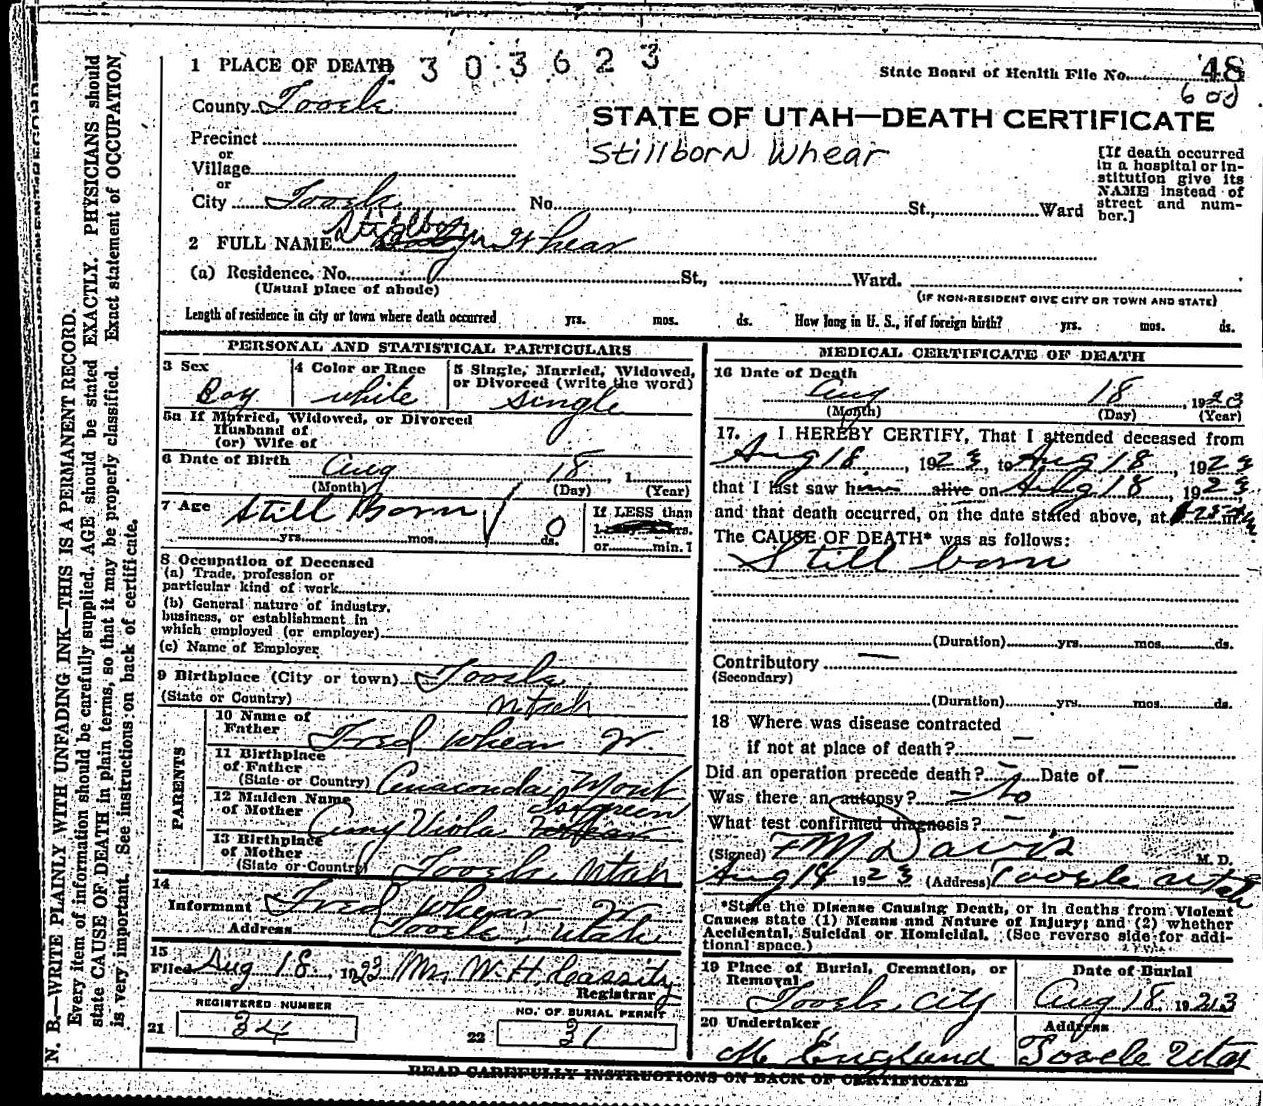 1 PLACE OF DEATH 303623
State Board of Health File No. 48
County Tooele
STATE OF UTAH—DEATH CERTIFICATE
Precinct
Stillborn Whear
or
Village
or
City Tooele No. , St., Ward
[If death occurred
in a hospital or in-
stitution give its
NAME instead of
street and num-
ber.]
2 FULL NAME Stillborn Whear
(a) Residence. No. St., Ward.
(Usual place of abode)
(IF NON-RESIDENT GIVE CITY OR TOWN AND STATE)
Length of residence in city or town where death occurred yrs. mos. ds. How long in U. S., if of foreign birth? yrs. mos. ds.
PERSONAL AND STATISTICAL PARTICULARS
3 Sex
Boy
4 Color or Race
white
5 Single, Married, Widowed,
or Divorced (write the word)
single
5a If Married, Widowed, or Divorced
Husband of
(or) Wife of
6 Date of Birth
Aug 18, 1
(Month) (Day) (Year)
7 Age Still Born
yrs. mos. 0 ds.
If LESS than
1 hrs.
or min.?
8 Occupation of Deceased
(a) Trade, profession or
particular kind of work
(b) General nature of industry,
business, or establishment in
which employed (or employer)
(c) Name of Employer
9 Birthplace (City or town) Tooele
(State or Country) Utah
PARENTS
10 Name of
Father Fred Whear Jr.
11 Birthplace
of Father
(State or Country) Anaconda Mont
12 Maiden Name
of Mother Amy Viola Isgreen
13 Birthplace
of Mother
(State or Country) Tooele, Utah
14
Informant Fred Whear Jr
Address Tooele, Utah
15
Filed Aug 18, 1923 Mrs W. H. Cassity
Registrar
REGISTERED NUMBER
21 34
NO. OF BURIAL PERMIT
22 31
MEDICAL CERTIFICATE OF DEATH
16 Date of Death
Aug 18, 1923
(Month) (Day) (Year)
17. I HEREBY CERTIFY, That I attended deceased from
Aug 18, 1923, to Aug 18, 1923
that I last saw him alive on Aug 18, 1923,
and that death occurred, on the date stated above, at m.
The CAUSE OF DEATH* was as follows:
Still born
(Duration) yrs. mos. ds.
Contributory —
(Secondary)
(Duration) yrs. mos. ds.
18 Where was disease contracted
if not at place of death? —
Did an operation precede death? Date of —
Was there an autopsy? —No
What test confirmed diagnosis? —
(Signed) F M Davis M. D.
Aug 18 1923 (Address) Tooele Utah
*State the Disease Causing Death, or in deaths from Violent
Causes state (1) Means and Nature of Injury; and (2) whether
Accidental, Suicidal or Homicidal. (See reverse side for addi-
tional space.)
19 Place of Burial, Cremation, or
Removal
Tooele City
Date of Burial
Aug 18 1923
20 Undertaker
M England
Address
Tooele Utah
READ CAREFULLY INSTRUCTIONS ON BACK OF CERTIFICATE
N. B.—WRITE PLAINLY WITH UNFADING INK—THIS IS A PERMANENT RECORD.
Every item of information should be carefully supplied. AGE should be stated EXACTLY. PHYSICIANS should
state CAUSE OF DEATH in plain terms, so that it may be properly classified. Exact statement of OCCUPATION,
is very important. See instructions on back of certificate.